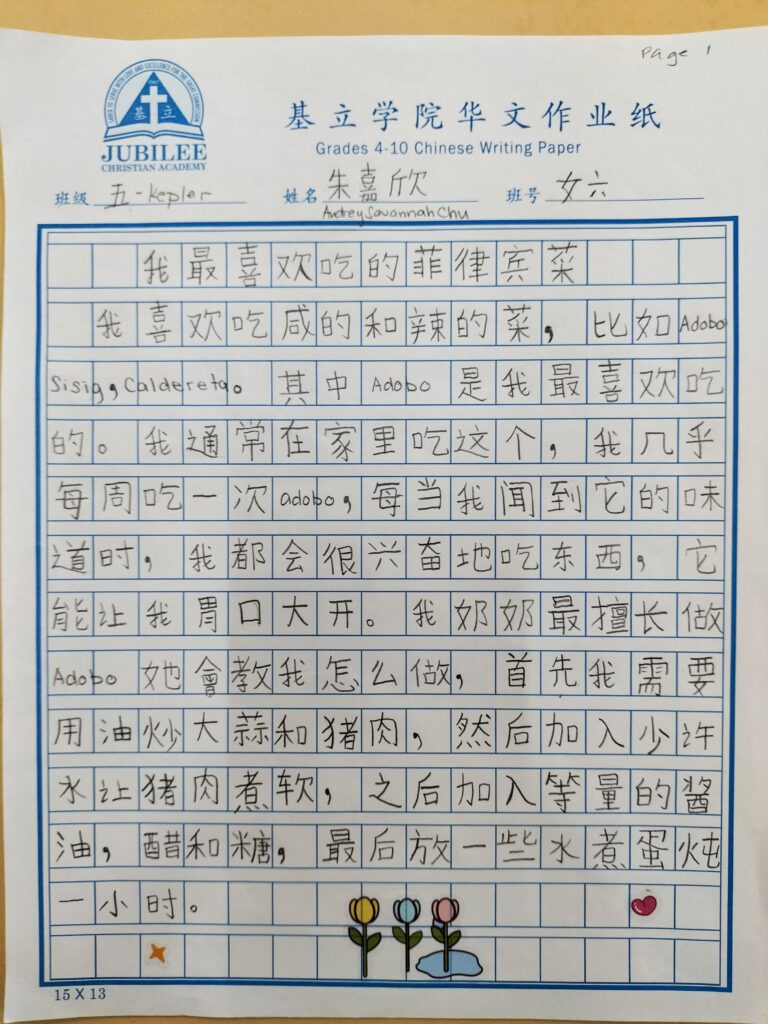 Page 1
SAVED TO SERVE WITH LOVE AND EXCELLENCE FOR THE GREAT COMMISSION
基 立
JUBILEE
CHRISTIAN ACADEMY
基立学院华文作业纸
Grades 4-10 Chinese Writing Paper
班级 五-Kepler 姓名 朱嘉欣 班号 女六
Audrey Savannah Chu
我最喜欢吃的菲律宾菜
我喜欢吃咸的和辣的菜，比如Adobo
Sisig,Caldereta。其中Adobo是我最喜欢吃
的。我通常在家里吃这个，我几乎
每周吃一次adobo，每当我闻到它的味
道时，我都会很兴奋地吃东西，它
能让我胃口大开。我奶奶最擅长做
Adobo她會教我怎么做，首先我需要
用油炒大蒜和猪肉，然后加入少许
水让猪肉煮软，之后加入等量的酱
油，醋和糖，最后放一些水煮蛋炖
一小时。
15 X 13